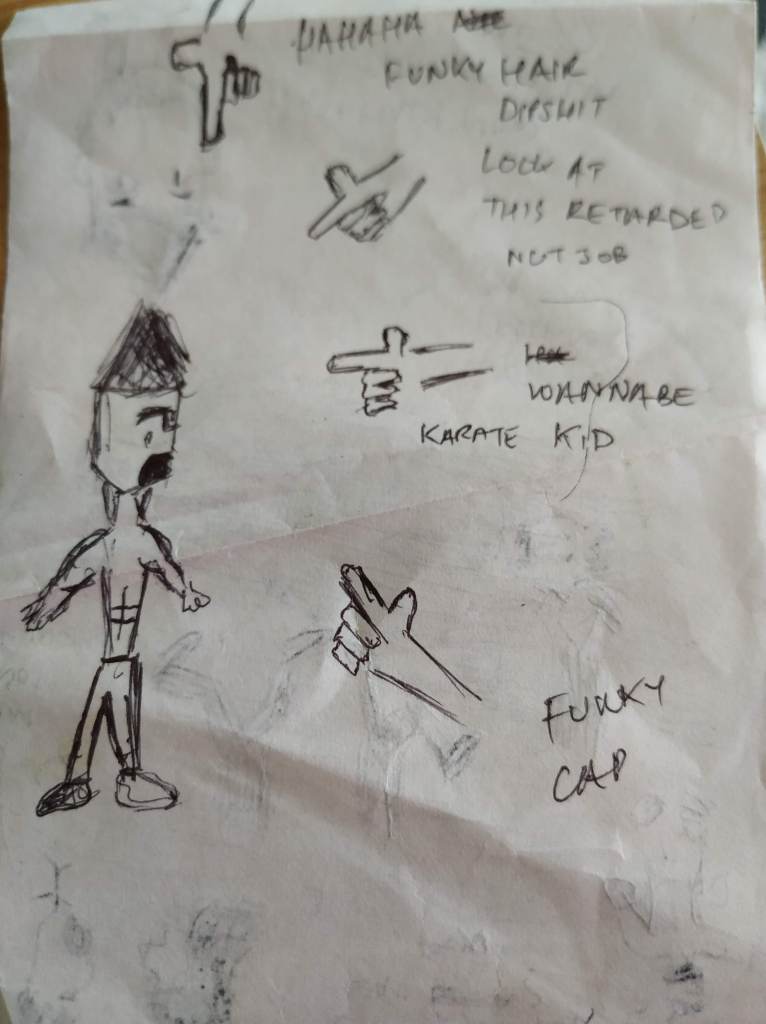 HAHAHA
FUNKY HAIR
DIPSHIT
LOOK AT
THIS RETARDED
NUT JOB
WANNABE
KARATE KID
FUNKY
CAP